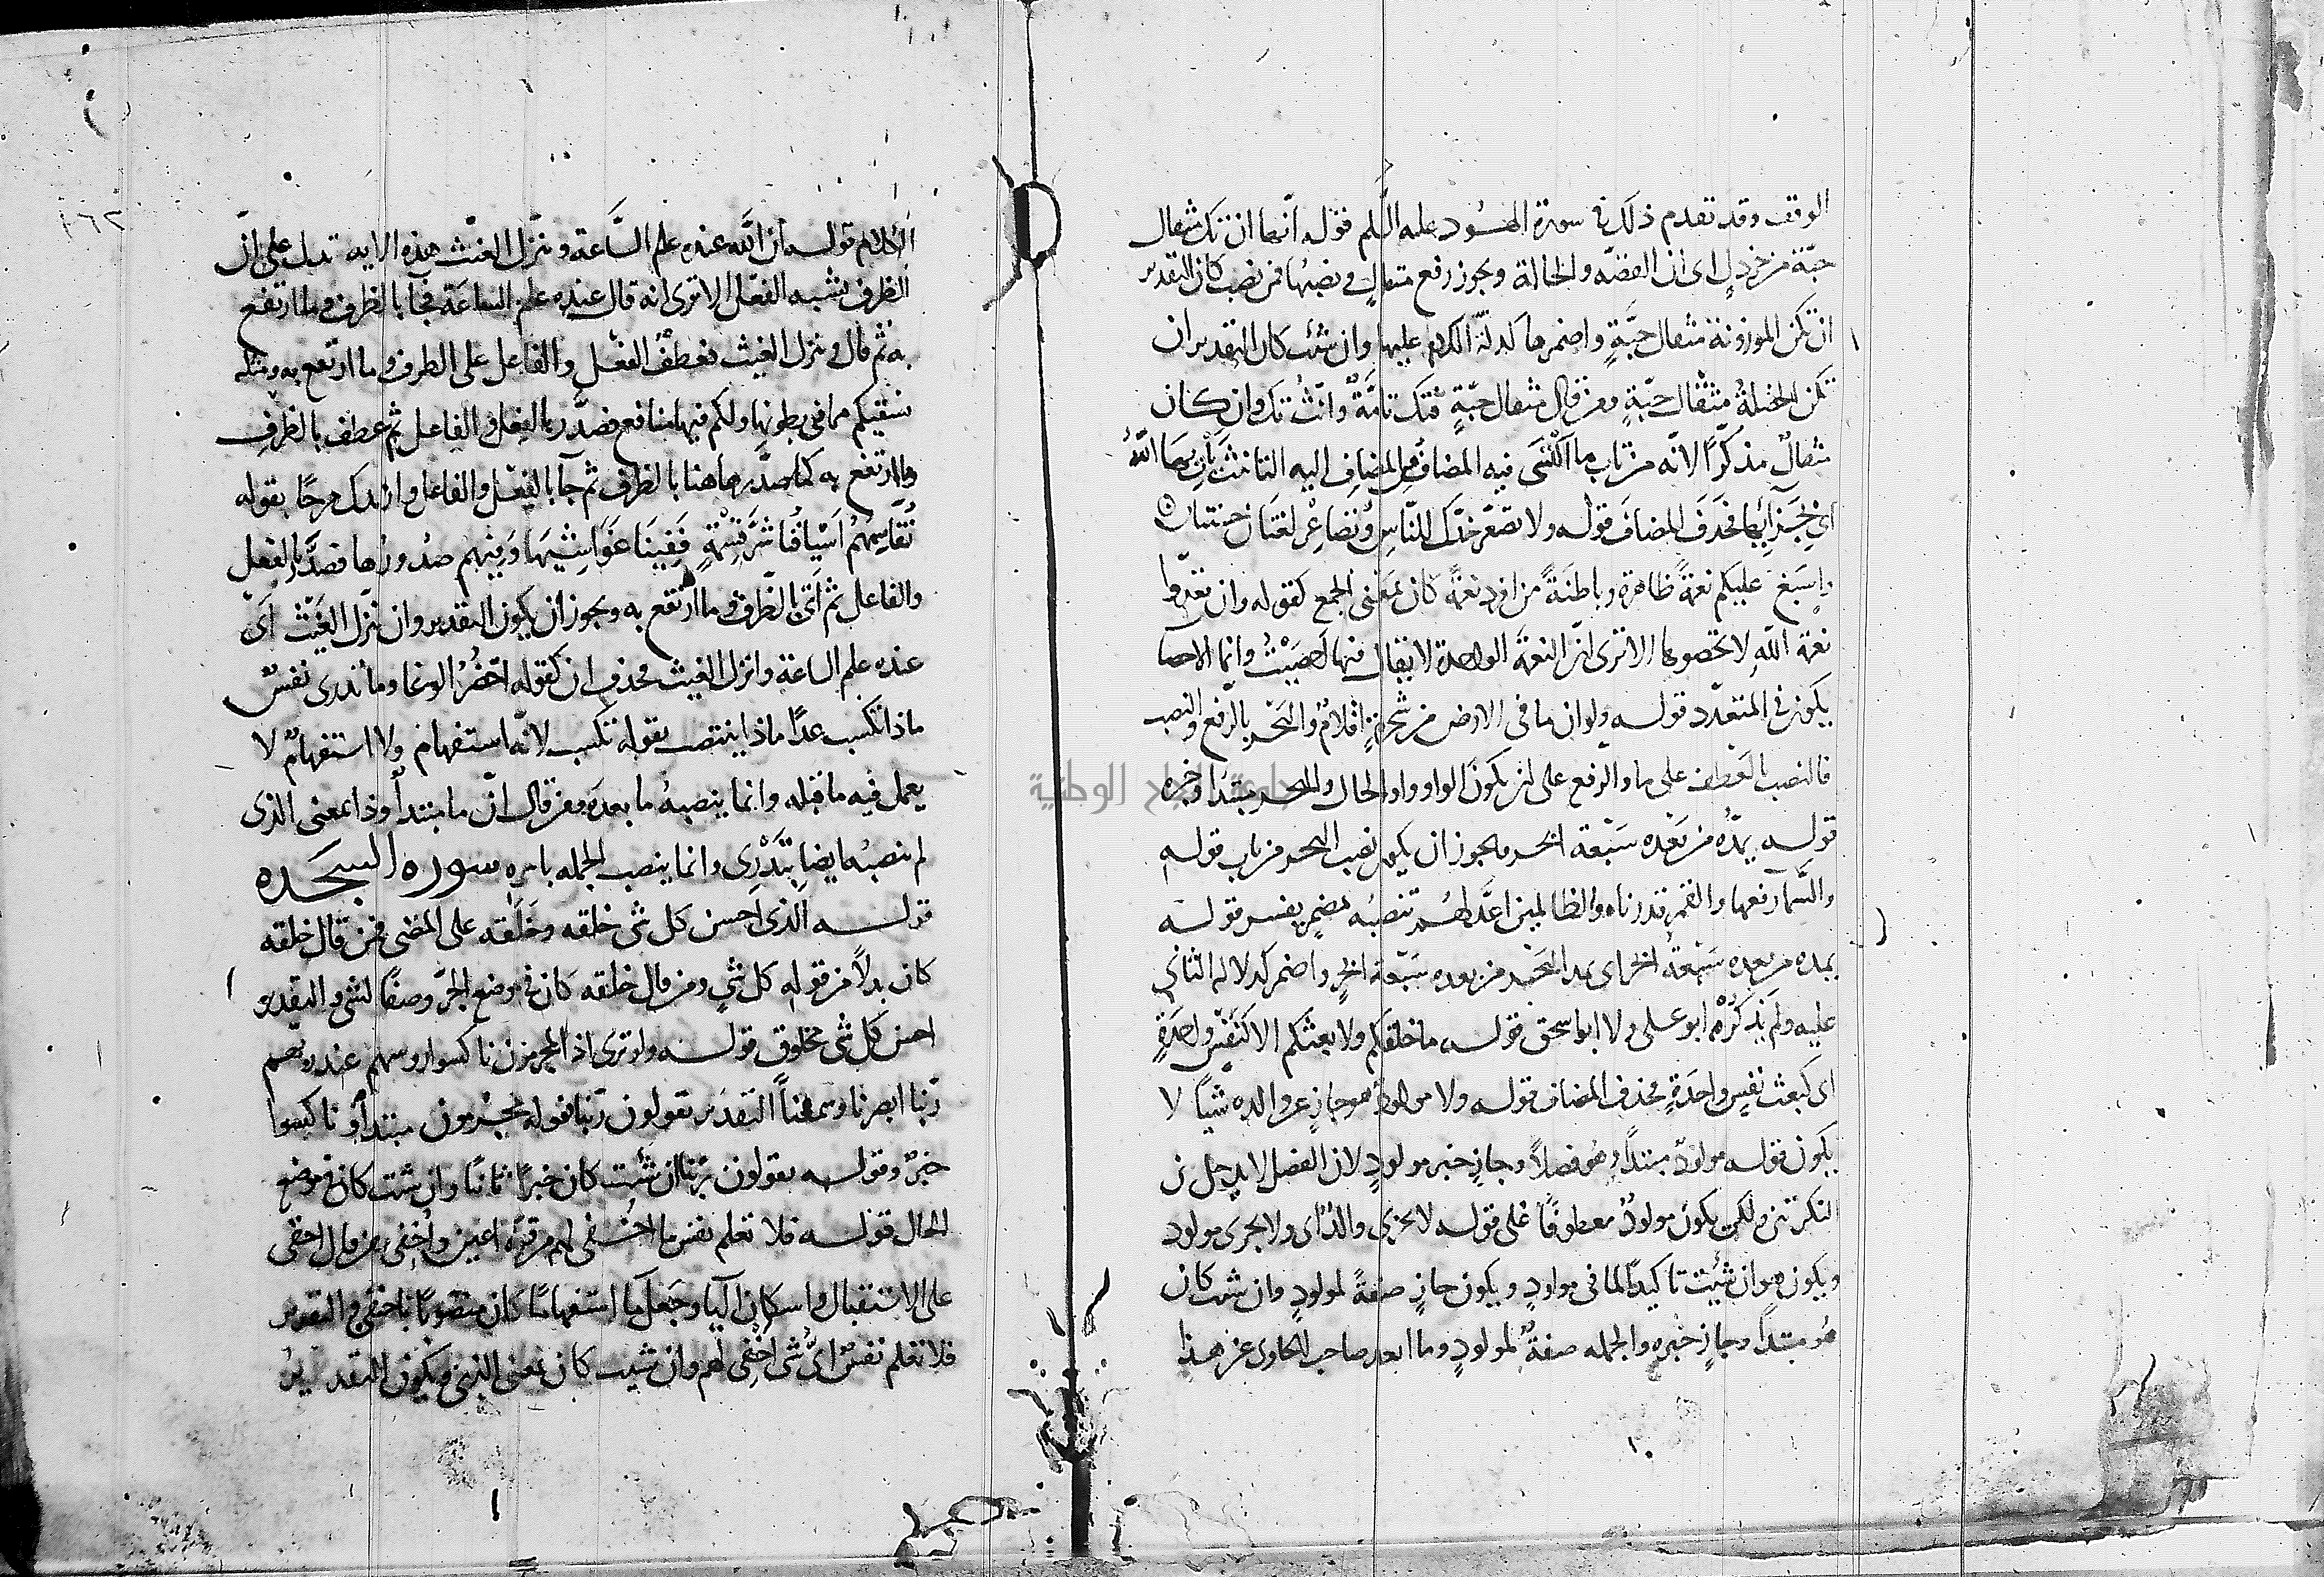 الوقف وقد تقدم ذلك في سورة هود عليه السلم قوله انها ان تك مثقال
حبة من خردل اى ان القصّه والحالة ويجوز رفع مثقال ونصبها فمن نصب كان التقدير
ان تكن الموزونة مثقال حبَّةٍ واضمرها لدلالة الكلام عليها وان شئت كان التقدير ان
تكن الخصلةُ مثقال حبّةٍ ومن قال مثقال حبّةٍ فتك تامَّةٌ وانّث تك وان كان
مثقال مذكّرًا لانّه من باب ما اكتسى فيه المضاف من المضاف اليه التانيث يأت بها اللهُ
اى بجزائها فحذف المضاف قوله ولا تصعّر خدّك للنّاس وتصاعر لغتان حسنتان
واسبغ عليكم نعمةً ظاهرة وباطنَةً من افرد نعمةً كان بمعنى الجمع كقوله وان تعدّوا
نعمة اللّهِ لا تحصوها الا ترى انّ النعمة الواحدة لا يقال فيها احصيتُ وانما الاحصا
يكون في المتعدّد قوله ولو ان ما فى الارض من شجرةٍ اقلامٌ والبحر بالرّفع والنصب
فالنصب بالعطف على ما والرفع على ان يكون الواو واو الحال والبحر مبتدا وخبره
قوله يمدّه من بَعْده سَبْعة ابحر ويجوز ان يكون نصب البحر من باب قوله
والسّما رفعها والقمر قدرناه والظالمين اعدّ لهم تنصبُه بمضمر يفسر قوله
يمده من بعده سَبْعةُ ابحر اى يمد البحر من بعده سَبْعة ابحرٍ واضمر لدلالة الثاني
عليه ولم يذكُرْه ابو على ولا ابو اسحق قوله ما خلقكم ولا بعثكم الا كنفس واحدةٍ
اى كبعث نفسٍ واحدَةٍ فحذف المضاف قوله ولا مولود هو جازٍ عن والده شيئًا لا
يكون قوله مولودٌ مبتدأ وهو فصلاً وجازٍ خبر مولودٍ لان الفصل لا يدخل بين
النكرتين ولكن يكون مولودٌ معطوفًا على قوله لا يجزى والدٌ اى ولا يجزى مولود
ويكون هو ان شئت تاكيدًا لما فى مولودٍ ويكون جازٍ صفةً لمولودٍ وان شئت كان
هُو مبتدأ وجازٍ خبره والجمله صفةٌ لمولودٍ وما ابعد صاحب الحاوى عن هذا
الكلام قوله ان اللّه عنده علم السَّاعة وينزّل الغيث هذه الايه تدل على انّ
الظرف يشبه الفعل الا ترى انه قال عنده علم الساعة فجآ بالظرف وما ارتفع
به ثم قال وينزل الغيث فعطفُ الفعل والفاعل على الظرف وما ارتفع به ومثله
نسقيكم مما فى بطونها ولكم فيها منافع فصدّر بالفعل والفاعل ثم عطف بالظرف
وما ارتفع به كما صدّر هاهنا بالظرف ثم جآ بالفعل والفاعل وان
نُقَاسِمهُمُ اَسْيَافُنا شَرَّ قِسْمَةٍ فَفِينَا غَوَاشِيهَا وَفيهم صُدورُها فصدَّر بالفعل
والفاعل ثم اتى بالظّرف وما ارتفع به ويجوز ان يكون التقدير وان ينزّل الغَيْث اى
عنده علم الساعة وانزل الغيث فحذف ان كقوله احْضُرُ الوغا وما تدرى نفسٌ
ماذا تكسب غدًا ماذا ينتصب بقوله تكسب لانّه استفهام ولا استفهامٌ لا
يعمل فيه ما قبله وانما ينصبهُ ما بعدَه ومن قال انّ ما مبتدأ وذا بمعنى الذى
لم ينصبه ايضا بتَدْرى وانما ينصب الجمله باسره سوره السجده
قوله الذى احسن كل شى خلقه وخَلَقه على المضى فمن قال خلقه
كان بدلاً من قوله كل شىٍ ومن قال خلقه كان فى موضع الجرّ وصفًا لشى والتقدير
احسن كل شى مخلوق قوله ولو ترى اذ المجرمون ناكسوا روسهم عند ربهم
ربّنا ابصرنا وسمعنا التقدير يقولون ربّنا فقوله المجرمون مبتدأ وناكسوا
خبرٌ وقوله يقولون ربّنا ان شئت كان خبرًا ثانيًا وان شئت كان فى موضع
الحال قوله فلا تعلم نفس ما اخفى لهم من قرّة اعين واُخفى من قال اخفى
على الاستقبال واسكان اليا وجعل ما استفهامًا كان منصوبًا باخفى والتقدير
فلا تعلم نفسٌ اىُّ شى اُخفى لهم وان شئت كان بمعنى الذى ويكون التقدير
١٦٢
جامعة النجاح الوطنية